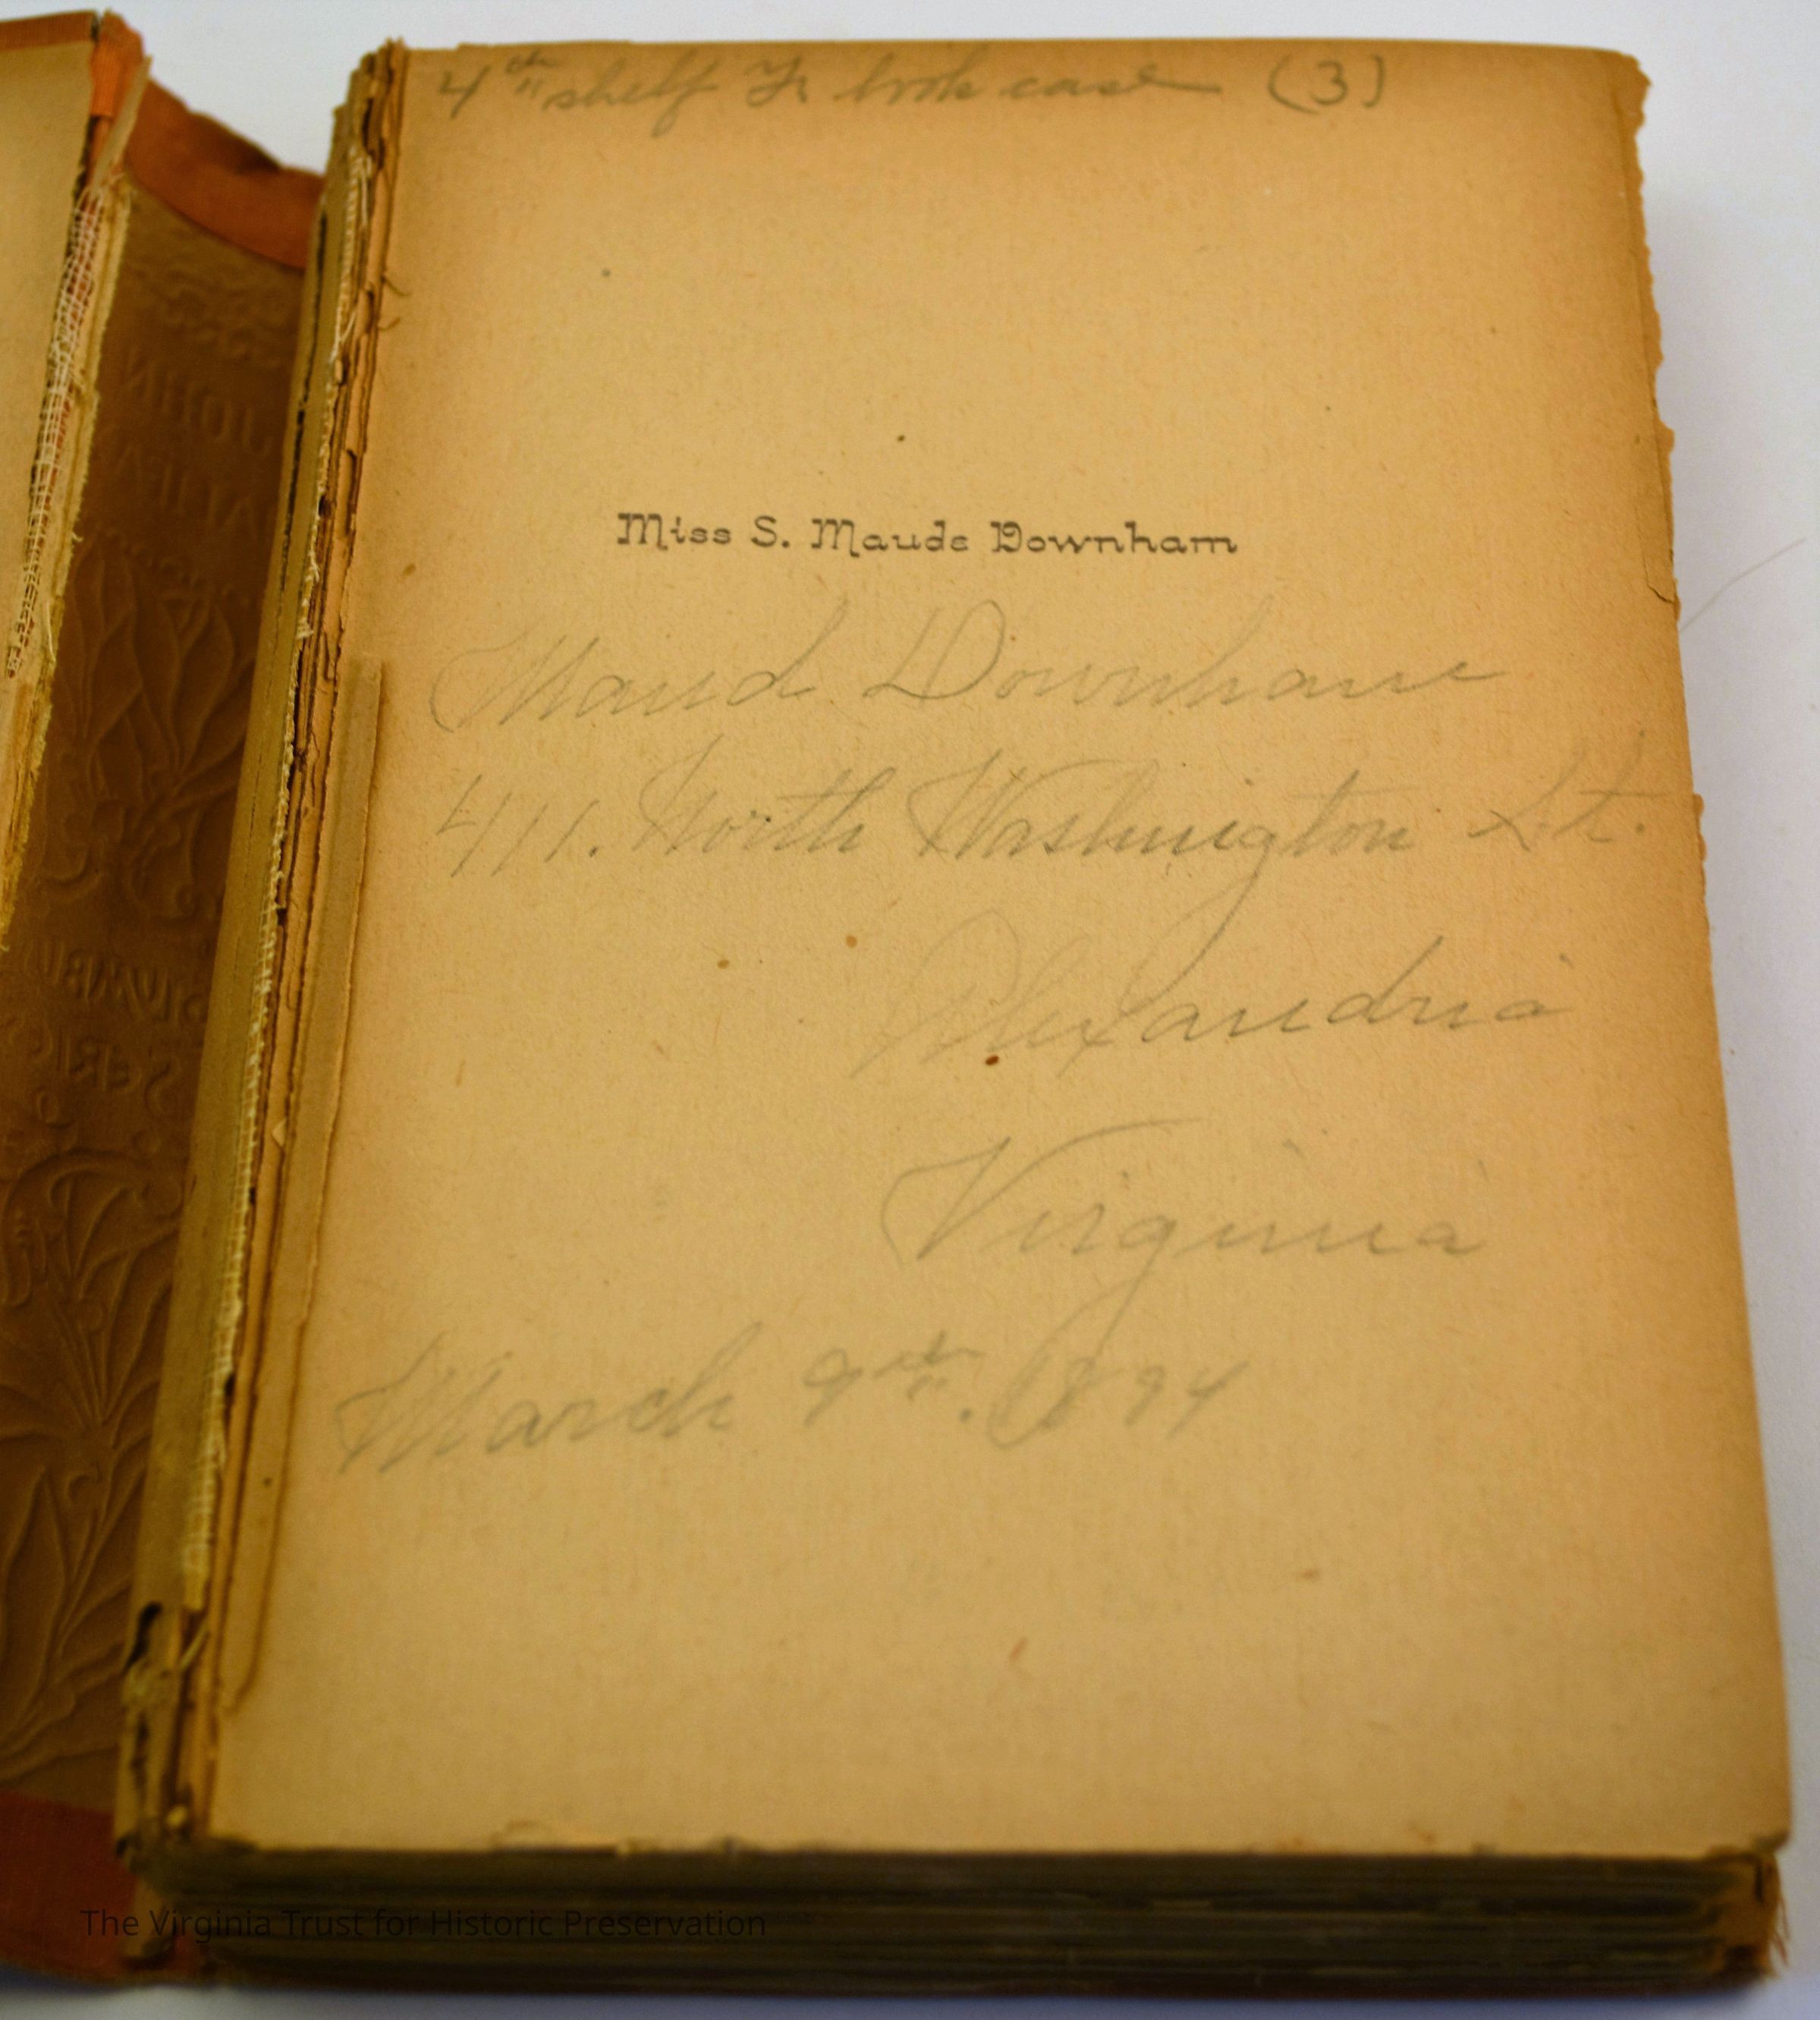 4th shelf Fr book case (3)
Miss S. Maude Downham
Maud Downham
411. North Washington St.
Alexandria
Virginia
March 9th. 1894
The Virginia Trust for Historic Preservation